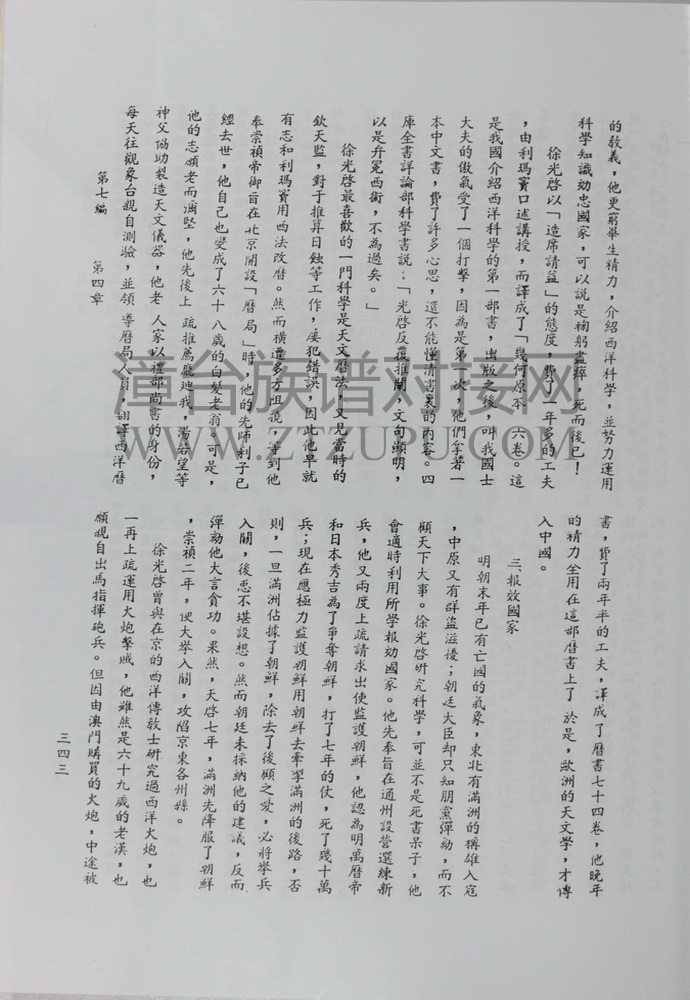 的教義，他更窮畢生精力，介紹西洋科學，並努力運用
科學知識効忠國家，可以說是鞠躬盡瘁，死而後已！
徐光啓以「造席請益」的態度，費了一年多的工夫
，由利瑪竇口述講授，而譯成了「幾何原本」六卷。這
是我國介紹西洋科學的第一部書，出版之後，叫我國士
大夫的傲氣受了一個打擊，因為是第一次，他們拿著一
本中文書，費了許多心思，還不能懂清書裏的內容。四
庫全書詳論部科學書說：「光啓反覆推闡，文句顯明，
以是弁冕西術，不為過矣。」
徐光啓最喜歡的一門科學是天文曆法，又見當時的
欽天監，對于推算日蝕等工作，屡犯錯誤，因此他早就
有志和利瑪竇用西法改曆。然而橫遭多方阻撓，等到他
奉崇禎帝御旨在北京開設「曆局」時，他的先師利子已
經去世，他自己也變成了六十八歲的白髮老翁。可是，
他的志願老而彌堅，他先後上 疏推薦龐迪我，湯若望等
神父協助製造天文儀器，他老 人家以禮部尚書的身份，
每天往觀象台親自測驗，並領 導曆局人員，翻譯西洋曆
第七編　第四章
書，費了兩年半的工夫，譯成了曆書七十四卷，他晚年
的精力全用在這部曆書上了 於是，歐洲的天文學，才傳
入中國。
三、報效國家
明朝末年已有亡國的氣象，東北有滿洲的稱雄入寇
，中原又有群盜滋擾；朝廷大臣却只知朋黨彈劾，而不
顧天下大事。徐光啓研究科學，可並不是死書呆子，他
會適時利用所學報効國家。他先奉旨在通州設營選練新
兵，他又兩度上疏請求出使監護朝鮮，他認為明萬曆帝
和日本秀吉為了爭奪朝鮮，打了七年的仗，死了幾十萬
兵；現在應極力監護朝鮮用朝鮮去牽掣滿洲的後路，否
則，一旦滿洲佔據了朝鮮，除去了後顧之憂，必將舉兵
入關，後患不堪設想。然而朝廷未採納他的建議，反而
彈劾他大言貪功。果然，天啓七年，滿洲先降服了朝鮮
，崇禎二年，便大舉入關，攻陷京東各州縣。
徐光啓曾與在京的西洋傳教士研究過西洋火炮，也
一再上疏運用火炮擊賊，他雖然是六十九歲的老漢，也
願親自出馬指揮砲兵。但因由澳門購買的火炮，中途被
三四三
漳台族谱对接网
WWW.ZTZUPU.COM